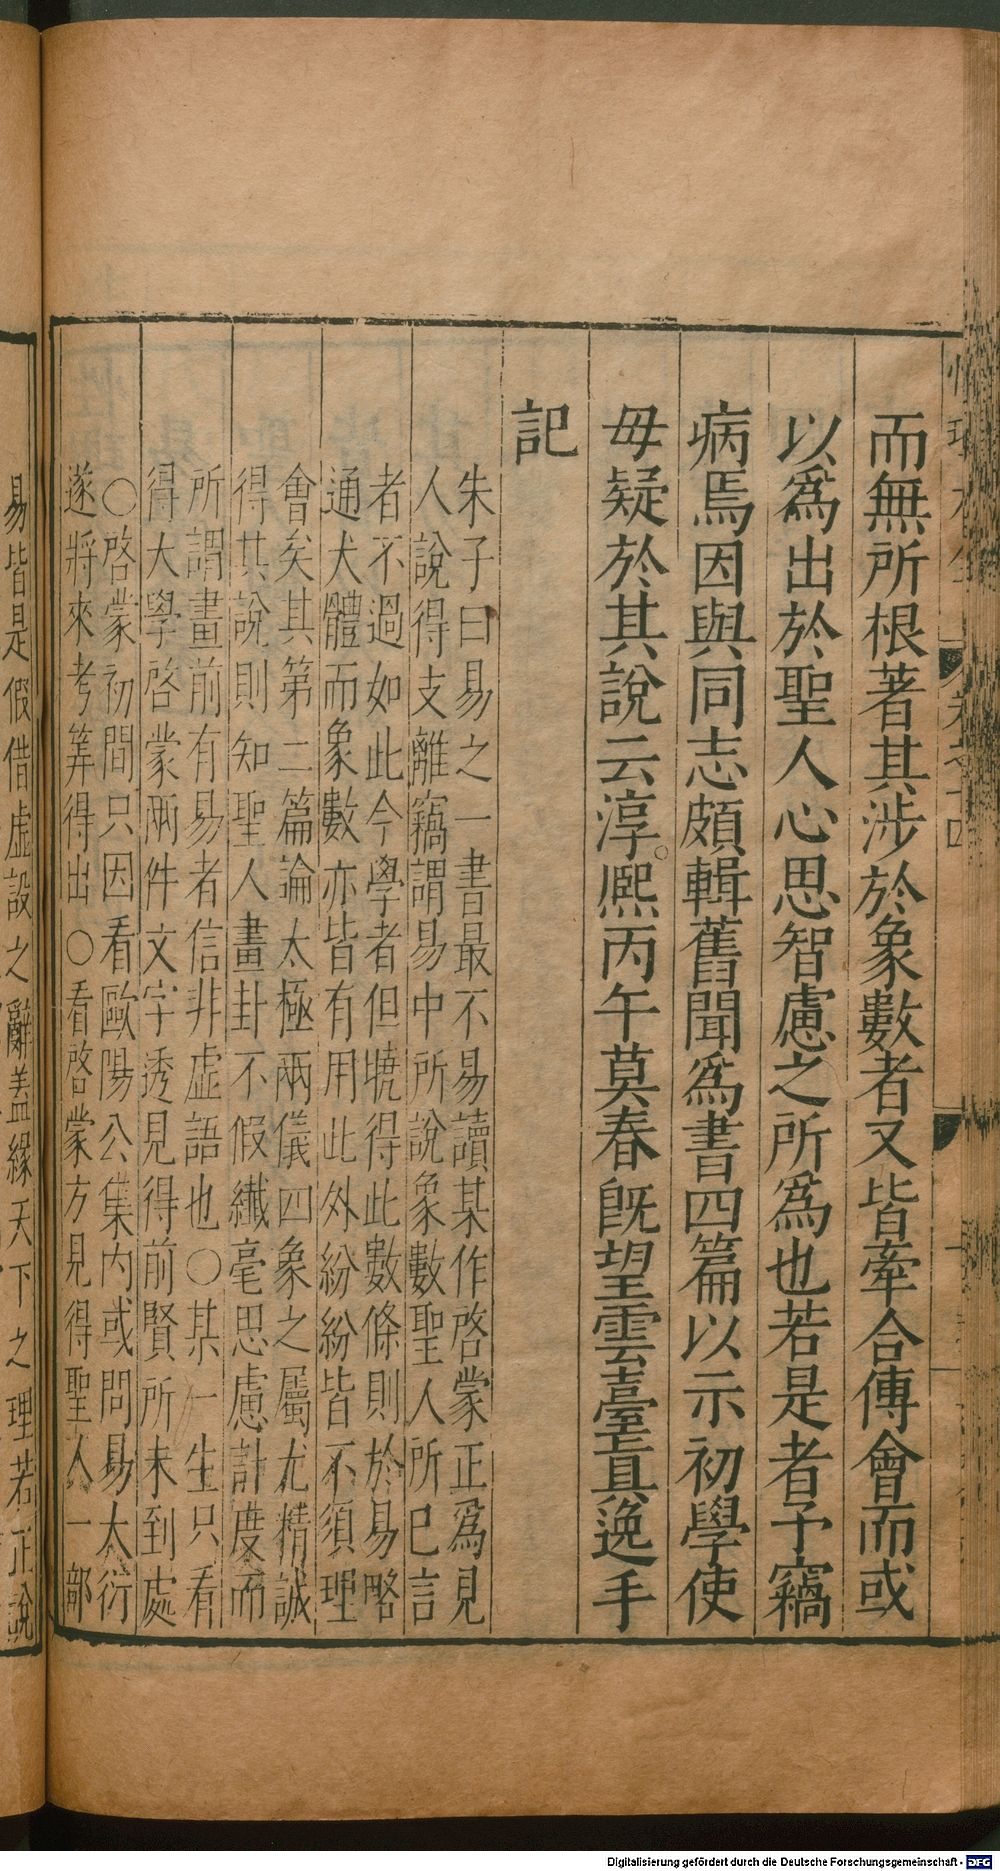 而無所根著其涉於象數者又皆牽合傳會而或
以爲出於聖人心思智慮之所爲也若是者予竊
病焉因與同志頗輯舊聞爲書四篇以示初學使
毋疑於其說云淳熈丙午莫春旣望雲臺眞逸手
記
朱子曰易之一書最不易讀某作啓蒙正爲見
人說得支離竊謂易中所說象數聖人所已言
者不過如此今學者但曉得此數條則於易略
通大體而象數亦皆有用此外紛紛皆不須理
會矣其第二篇論太極兩儀四象之屬尤精誠
得其說則知聖人畫卦不假纖毫思慮計度而
所謂畫前有易者信非虛語也〇某一生只看
得大學啓蒙兩件文字透見得前賢所未到處
〇啓蒙初間只因看歐陽公集內或問易太衍
遂將來考筭得出〇看啓蒙方見得聖人一部
易皆是假借虛設之辭盖緣天下之理若正說
Digitalisierung gefördert durch die Deutsche Forschungsgemeinschaft - DFG